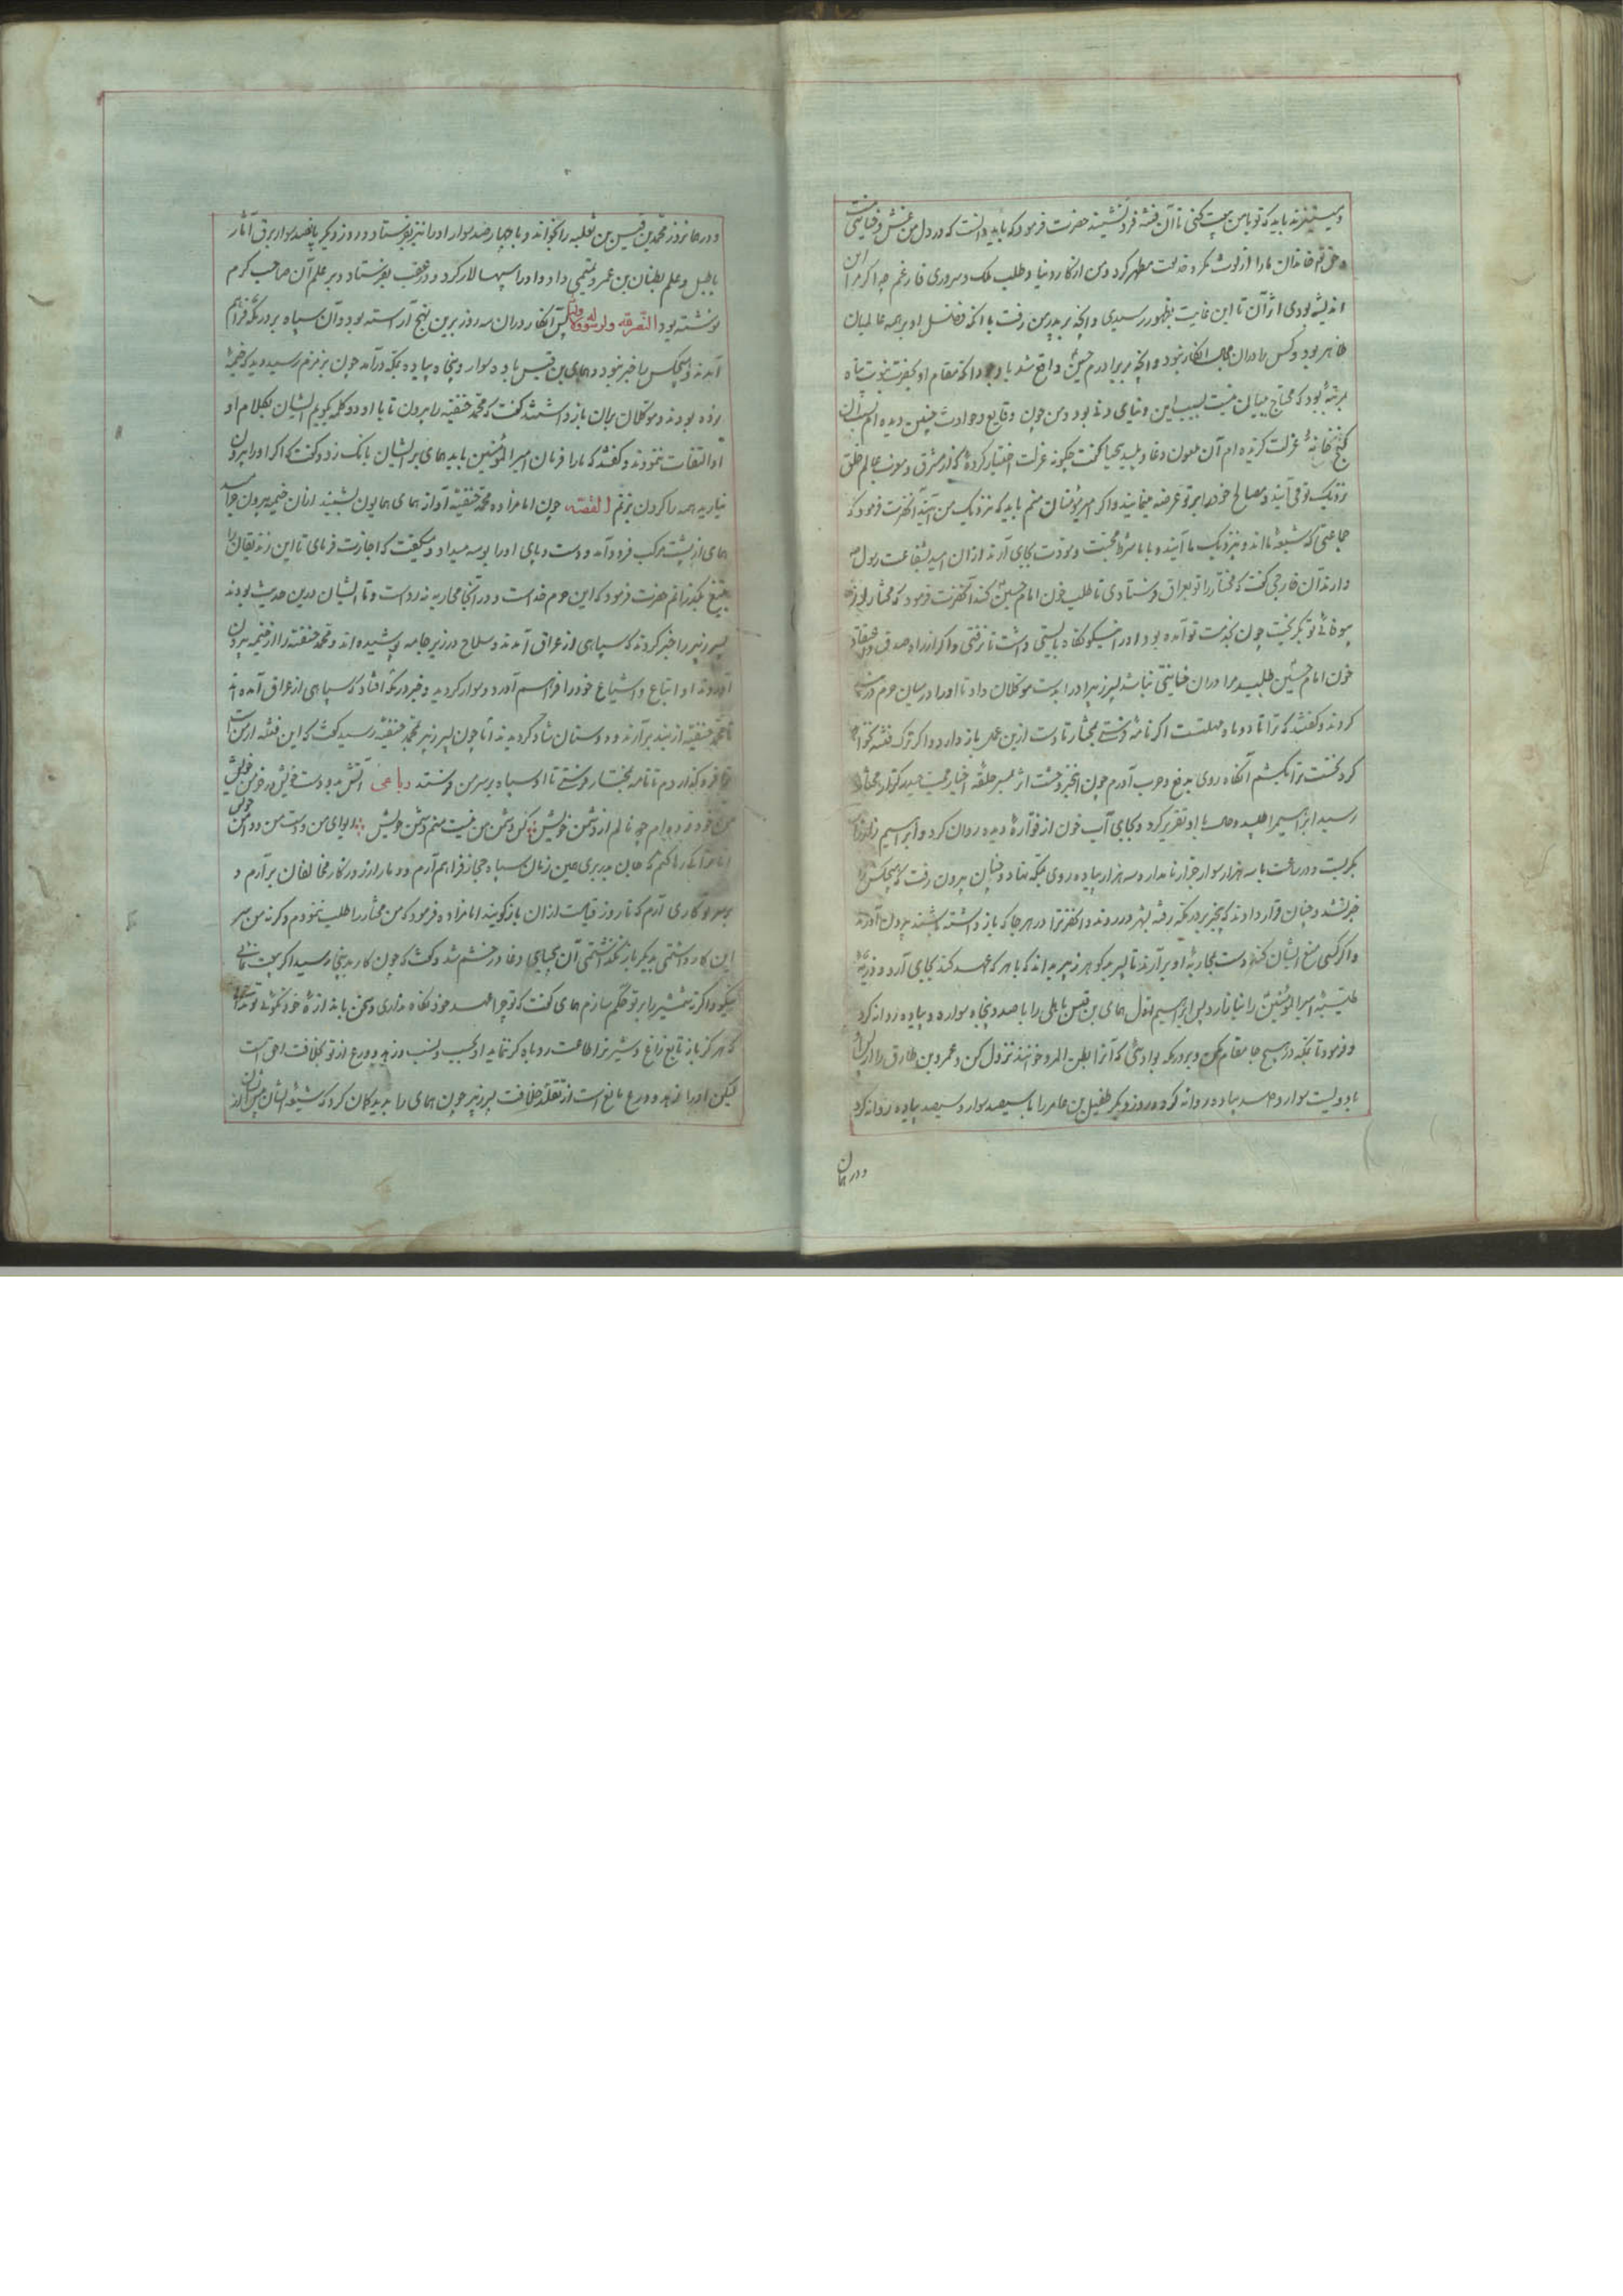 و میستیزند باید که تو با من بیعت کنی تا آن فتنه فرو نشیند حضرت فرمود که باید دانست که در دل من غش و خیانتی نیست
و حق تعالی خاندان ما را از لوث مکر و خدیعت مطهر کرد و من از کار دنیا و طلب ملک و سروری فارغم چه اگر مرا این
اندیشه بودی اثر آن تا این غایت بظهور رسیدی و آنچه بر پدر من رفت با آنکه فضل او بر همه عالمیان
ظاهر بود و کس را در آن مجال انکار نبود و آنچه بر برادرم حسین واقع شد با وجود آنکه مقام او بحضرت نبوت پناه
بمرتبهٔ بود که محتاج ببیان نیست بسبب این دنیای دنی بود و من چون وقایع و حوادث چنین دیده ام
کنج خانهٔ عزلت گزیده ام آن ملعون دغا و پلید بیحیا گفت چگونه عزلت اختیار کردهٔ که از مشرق و مغرب عالم خلق
نزدیک تو می آیند و مصالح خود را بر تو عرضه مینمایند و اگر امیر مؤمنان منم باید که نزدیک من آیند آنحضرت فرمود که
جماعتی که شیعهٔ ما اند و نزدیک ما آیند و با ما شرط محبت و مودت بجای آرند از آن امید شفاعت رسول
دارند آن خارجی گفت که مختار را تو بعراق فرستادی تا طلب خون امام حسین کند آنحضرت فرمود که مختار از
بیوفائی تو بگریخت چون بخدمت تو آمده بود او را نیکو نگاه بایستی داشت تا نرفتی و اگر از راه صدق و اعتقاد
خون امام حسین طلبد مرا در آن خیانتی نباشد پسر زبیر او را بدست موکلان داد تا او را در میان حرم
کردند و گفتند که ترا تا دو ماه مهلتست اگر نامه فرستی بمختار تا دست ازین عمل باز دارد و اگر ترک فتنه نخواهد
کرد نخست ترا بکشم آنگاه روی بدفع و حرب آورم چون این خبر وحشت اثر بسر حلقهٔ اخیار محبت حیدر کرار مختار
رسید ابراهیم را طلبید و حال با او تقریر کرد و بجای آب خون از فوّارهٔ دیده روان کرد و ابراهیم
بگریست و در ساعت با سه هزار سوار جرار نامدار و سه هزار پیاده روی بمکه نهاد و چنان بیرون رفت که هیچکس را
خبر نشد و چنان قرار دادند که بیخبر بر در مکه رفته بشهر در روند و آنحضرت را در هر جا که باز داشته باشند بیرون آورند
و اگر کسی منع ایشان کند دست بمحاربهٔ او بر آرند تا پسر بدگوهر زبیر بداند که با هر که عهد کند بجای آرد و ذریهٔ
طیبهٔ امیر المؤمنین را نیازارد پس ابراهیم اول همای بن قیس باهلی را با صد و پنجاه سواره و پیاده روانه کرد
و فرمود تا بمکه در هیچ جا مقام مکن و بر در مکه بوادیی که آنرا بطن المرو خوانند نزول کن و عمرو بن طارق را
با دویست سوار و صد پیاده روانه کرد و روز دیگر طفیل بن عامر را با سیصد سوار و سیصد پیاده روانه کرد
و در همان
و در همانروز محمد بن قیس بن ثعلبه را بخواند و با چهار صد سوار او را نیز بفرستاد و روز دیگر پانصد سوار برق آثار
با طبل و علم بظبیان بن عمرو تمیمی داد و او را سپهسالار کرد و در عقب بفرستاد و بر علم آن صاحب کرم
نوشته بود النصر لله ولرسوله پس آنگاه در آن سه روز برین نهج آراسته بود و آن سپاه بر در مکه فراهم
آمدند و هیچکس را خبر نبود و همای بن قیس با ده سوار و پنجاه پیاده بمکه در آمد چون بزمزم رسید دید که خیمهٔ
زده بودند و موکلان بر آن باز داشته گفت که محمد حنفیه را بیرون تا با او دو کلمه بگویم ایشان بکلام او
او التفات ننمودند و گفتند که ما را فرمان امیر المؤمنین باید همای بر ایشان بانک زد و گفت که اگر او را بیرون
نیارید همه را گردن بزنم القصه چون امامزاده محمد حنفیه آواز همای همایون بشنید از آن خیمه بیرون خرامید
همای از پشت مرکب فرود آمد و دست و پای او را بوسه میداد و میگفت که اجازت فرمای تا این زندیقان را
بتیغ بگذرانم حضرت فرمود که این حرم خداست و در آنجا محاربه نه رواست و تا ایشان درین حدیث بودند
پسر زبیر را خبر کردند که سپاهی از عراق آمدند و سلاح در زیر جامه پوشیده اند و محمد حنفیه را از خیمه بیرون
آوردند او اتباع و اشیاع خود را فراهم آورد و سوار گردید و خبر در مکه افتاد که سپاهی از عراق آمده اند
تا محمد حنفیه از بند بر آرند و دوستان شاد گردیدند اما چون پسر زبیر بمحمد حنفیه رسید گفت که این فتنه از من است
ترا فرو گذاردم تا نامه بمختار فرستی تا او سپاه بر سر من فرستد رباعی آتش بدو دست خویش در خرمن خویش
من خود زده ام چه نالم از دشمن خویش کس دشمن من نیست منم دشمن خویش ای وای من و دست من و دامن خویش
اما ترا کی رها کنم که جان ببری همین زمان سپاه حجاز فراهم آرم و دمار از روزگار مخالفان بر آرم و
بر سر تو کاری آرم که تا روز قیامت از آن باز گویند امامزاده فرمود که من مختار را طلب ننمودم و گرنه من سر
این کار داشتمی بدیگر باز نگذاشتمی آن بیحیای دغا در خشم شد و گفت که چون کار بدینجا رسید اگر بیعت نمائی
نیکو و اگر نه شمشیر را بر تو حکم سازم همای گفت که تو چرا عهد خود نگاه نداری و سخن باندازهٔ خود نگوئی
که هرگز باز تابع زاغ و شیر نر اطاعت روباه کر ننماید او بحسب و نسب و زهد و ورع از تو بخلافت احق است
لیکن او را زهد و ورع مانع است از تقلد خلافت پسر زبیر چون همای را بدید گمان کرد که شیعهٔ ایشان